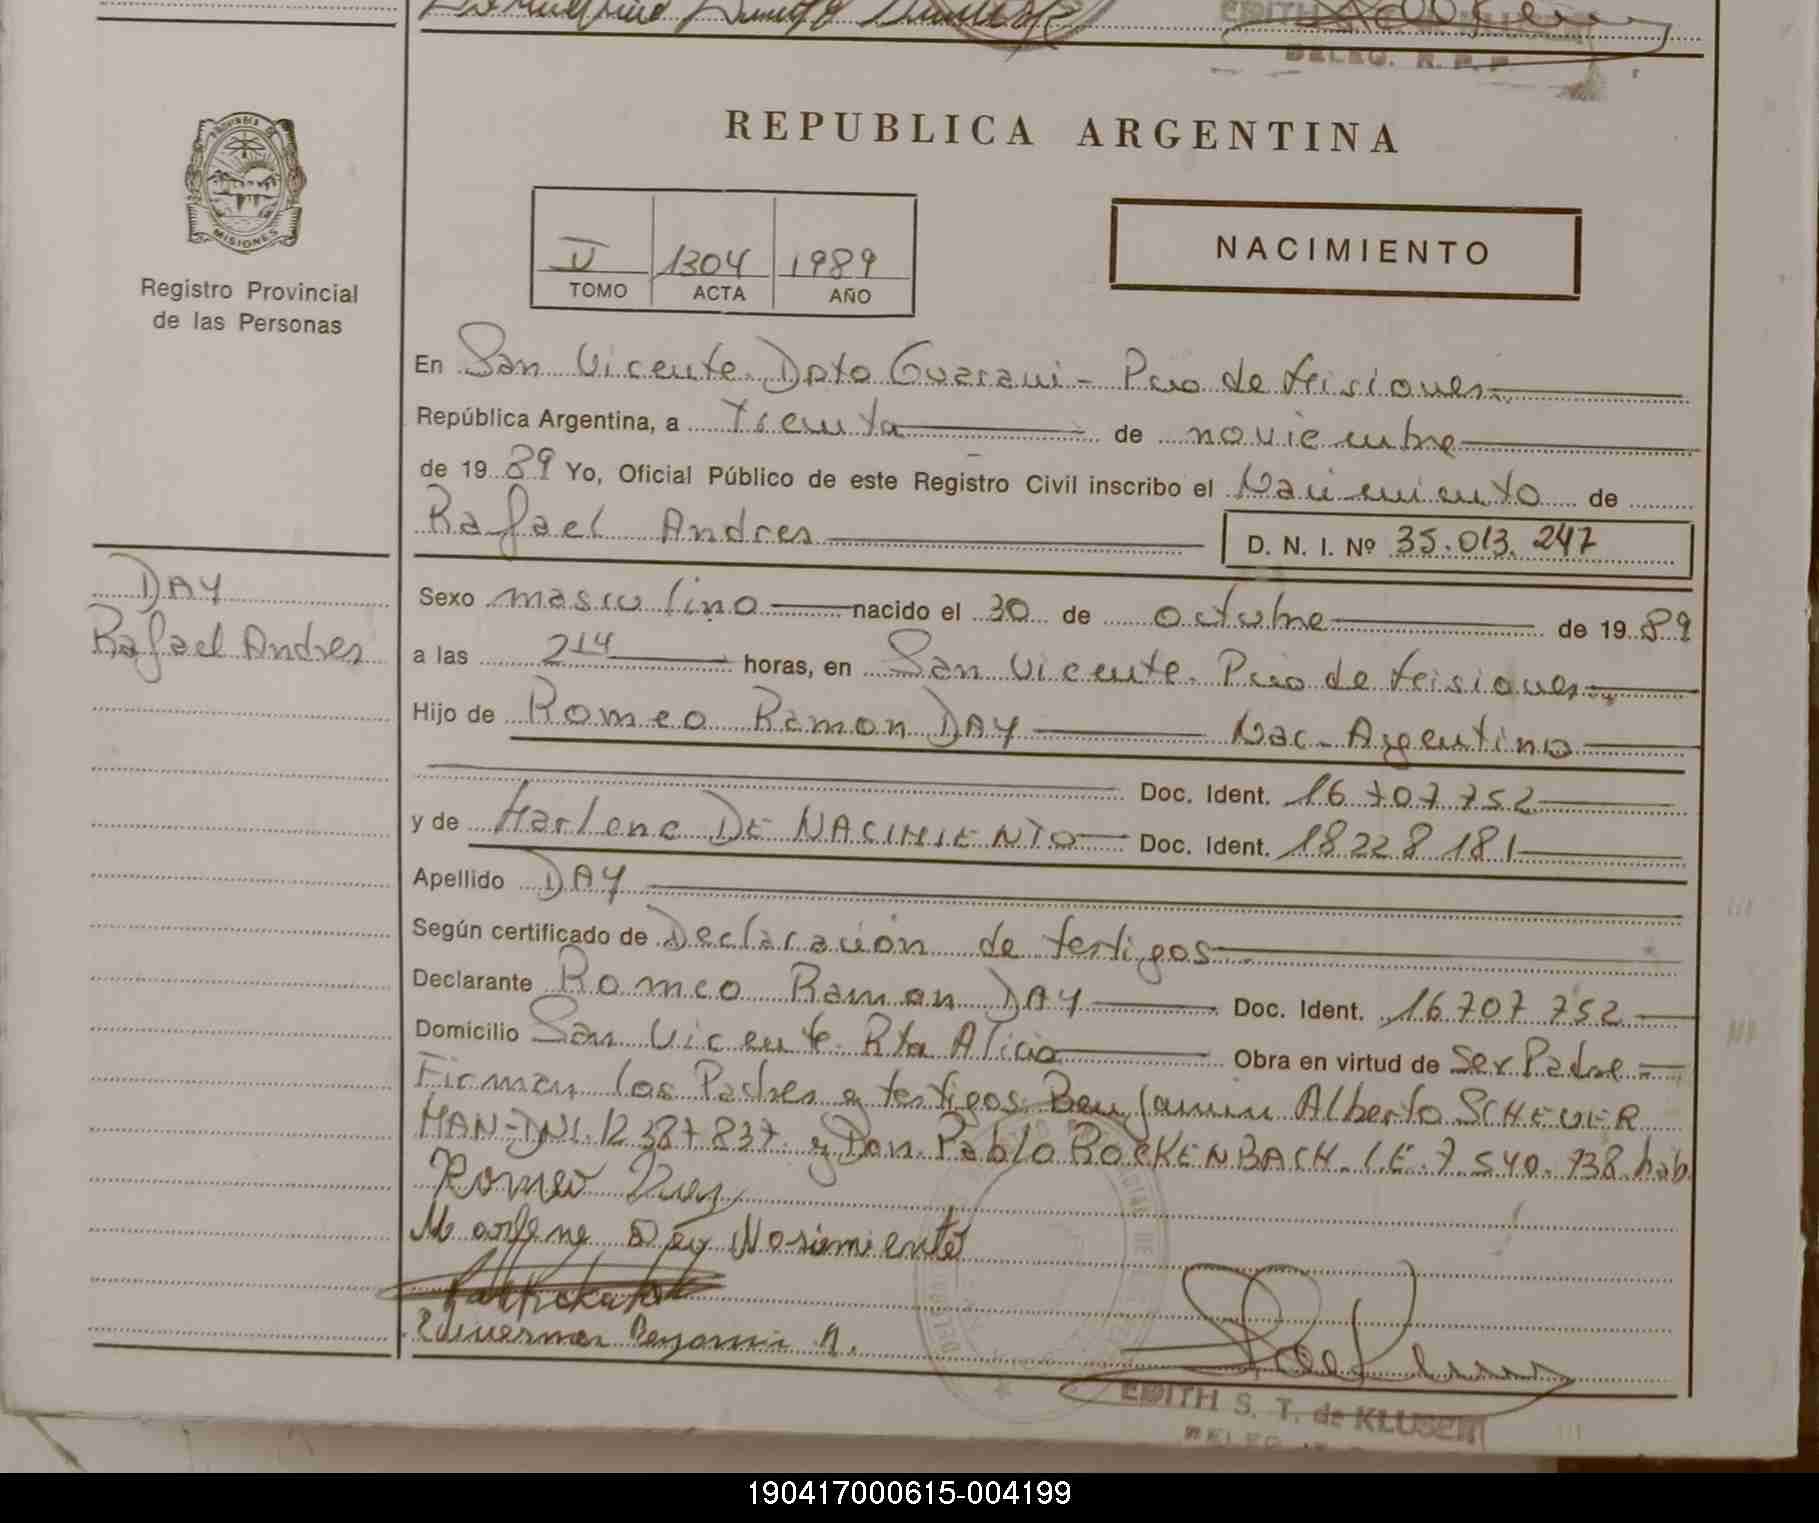 EDITH S.
DELEG. R. P. P.
PROVINCIA DE
MISIONES
Registro Provincial
de las Personas
REPUBLICA ARGENTINA
II 1304 1989
TOMO ACTA AÑO
NACIMIENTO
En San Vicente Dpto Guarani - Pcia de Misiones
República Argentina, a treinta de noviembre
de 1989 Yo, Oficial Público de este Registro Civil inscribo el Nacimiento de
Rafael Andres
D. N. I. Nº 35.013.247
DAY
Rafael Andres
Sexo masculino nacido el 30 de octubre de 1989
a las horas, en San Vicente. Pcia de Misiones
Hijo de Romeo Ramon DAY Nac. Argentino
Doc. Ident. 16 707 752
y de Marlene DE NACIMIENTO Doc. Ident. 18 228 181
Apellido DAY
Según certificado de Declaración de testigos
Declarante Romeo Ramon DAY Doc. Ident. 16 707 752
Domicilio San Vicente Rta Alicia Obra en virtud de Ser Padre
Firman los Padres y testigos Benjamin Alberto SCHEUER
MAN-DNI. 12 387 837. y Don Pablo ROCKENBACH. L.E. 7 540. 738 hab
Romeo
Marlene Nosimiento
Benjamin A.
EDITH S. T. de KLUSENER
DELEG.
190417000615-004199